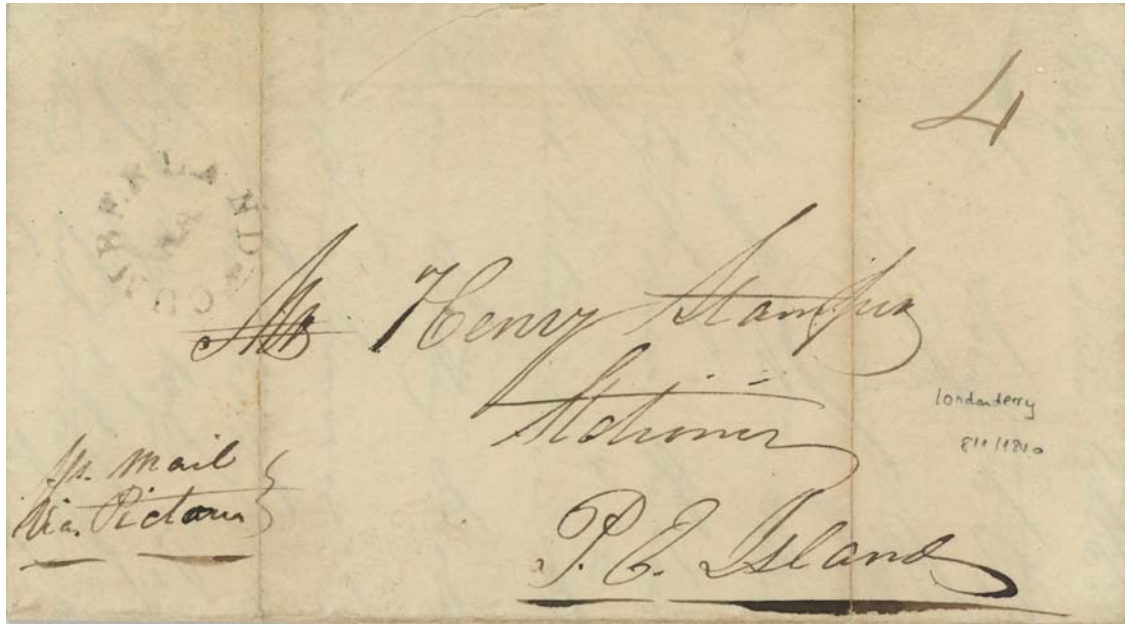 4
CUMBERLAND
Mr Henry Stamper
P. E. Island
pr. Mail
Via. Pictou
Londonderry